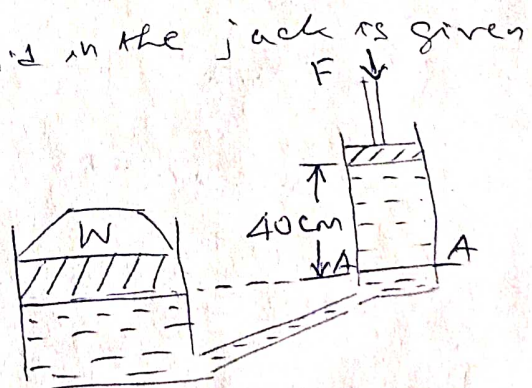 in the jack is given
F
40cm
A A
W